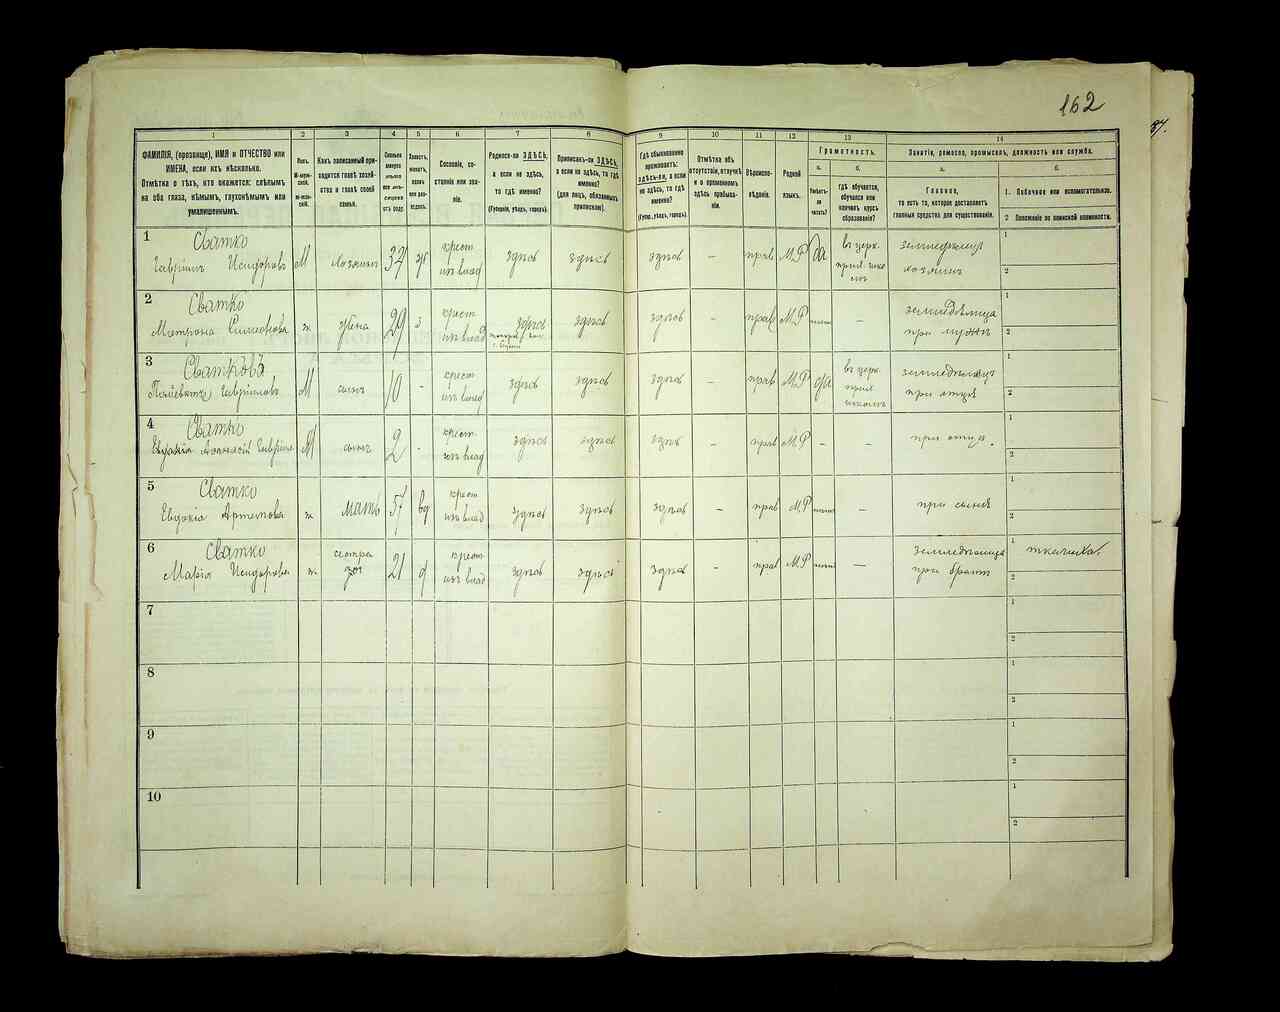 162
87.
1 2 3 4 5 6 7 8 9 10 11 12 13 14
ФАМИЛІЯ, (прозвище), ИМЯ и ОТЧЕСТВО или
ИМЕНА, если ихъ нѣсколько.
Отмѣтка о тѣхъ, кто окажется: слѣпымъ
на оба глаза, нѣмымъ, глухонѣмымъ или
умалишеннымъ.
Полъ.
М-мужской.
Ж-женскій.
Какъ записанный при-
ходится главѣ хозяй-
ства и главѣ своей
семьи.
Сколько
минуло
лѣтъ
отъ роду.
Холостъ,
женатъ,
вдовъ
или раз-
веденъ.
Сословіе, со-
стояніе или зва-
ніе.
Родился-ли ЗДѢСЬ,
а если не здѣсь,
то гдѣ именно?
(Губернія, уѣздъ, городъ).
Приписанъ-ли ЗДѢСЬ,
а если не здѣсь, то гдѣ
именно?
(для лицъ, обязанныхъ
припискою).
Гдѣ обыкновенно
проживаетъ:
здѣсь-ли, а если
не здѣсь, то гдѣ
именно?
(Губер., уѣздъ, городъ).
Отмѣтка объ
отсутствіи, отлучкѣ
и о временномъ
здѣсь пребыва-
ніи.
Вѣроиспо-
вѣданіе.
Родной
языкъ.
Грамотность.
а. б.
Умѣетъ-
ли
читать?
гдѣ обучается,
обучался или
кончилъ курсъ
образованія?
Занятіе, ремесло, промыселъ, должность или служба.
а. б.
Главное,
то есть то, которое доставляетъ
главныя средства для существованія.
1. Побочное или вспомогательное.
2 Положеніе по воинской повинности.
1 Сватко
Гавріилъ Исидоровъ М хозяинъ 37 ж крест. изъ влад здѣсь здѣсь здѣсь – прав М.Р да въ церк. прих. школѣ земледѣлецъ хозяинъ 1 2
2 Сватко
Матрона Симеонова ж жена 29 з крест изъ влад здѣсь здѣсь здѣсь – прав М.Р – земледѣлица при мужѣ 1 2
3 Сватковъ
Гавріиловъ М сынъ 10 - крест изъ влад здѣсь здѣсь здѣсь – прав М.Р да въ церк. прих. школѣ земледѣлецъ при отцѣ 1 2
4 Сватко
Аѳанасій Гавріил М сынъ 2 - крест изъ влад здѣсь здѣсь здѣсь – прав М.Р – – при отцѣ. 1 2
5 Сватко
Евдокія Артемова ж мать 57 вд крест изъ влад здѣсь здѣсь здѣсь – прав М.Р – при сынѣ 1 2
6 Сватко
Марія Исидорова ж сестра 21 д крест изъ влад здѣсь здѣсь здѣсь – прав М.Р – земледѣлица при братѣ 1 ткачиха. 2
7 1 2
8 1 2
9 1 2
10 1 2